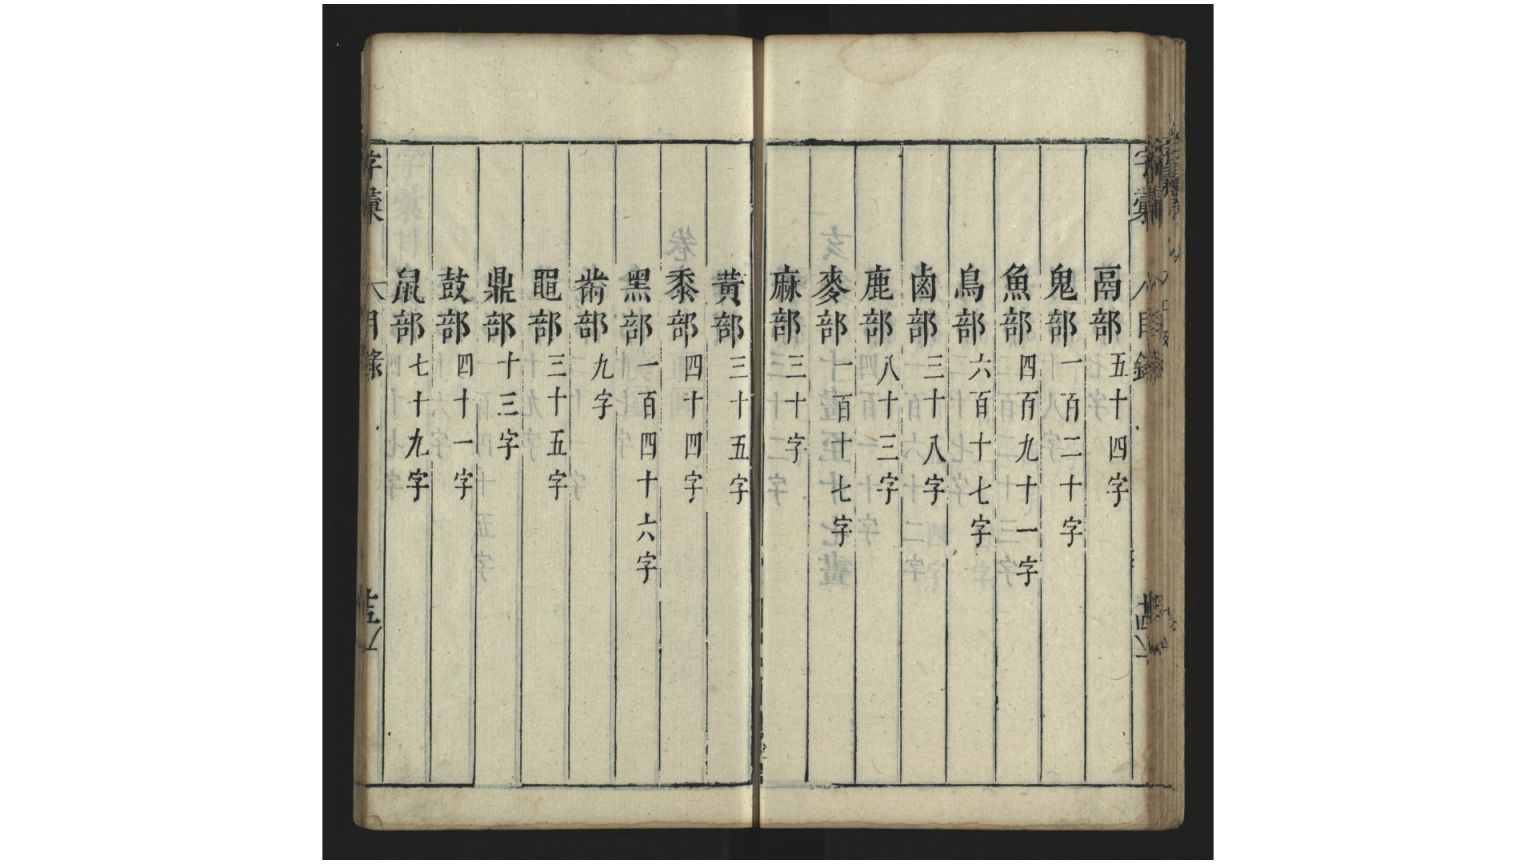 字彙 目錄
鬲部五十四字
鬼部一百二十字
魚部四百九十一字
鳥部六百十七字
鹵部三十八字
鹿部八十三字
麥部一百十七字
麻部三十字
黃部三十五字
黍部四十四字
黑部一百四十六字
黹部九字
黽部三十五字
鼎部十三字
鼓部四十一字
鼠部七十九字
字彙 目錄